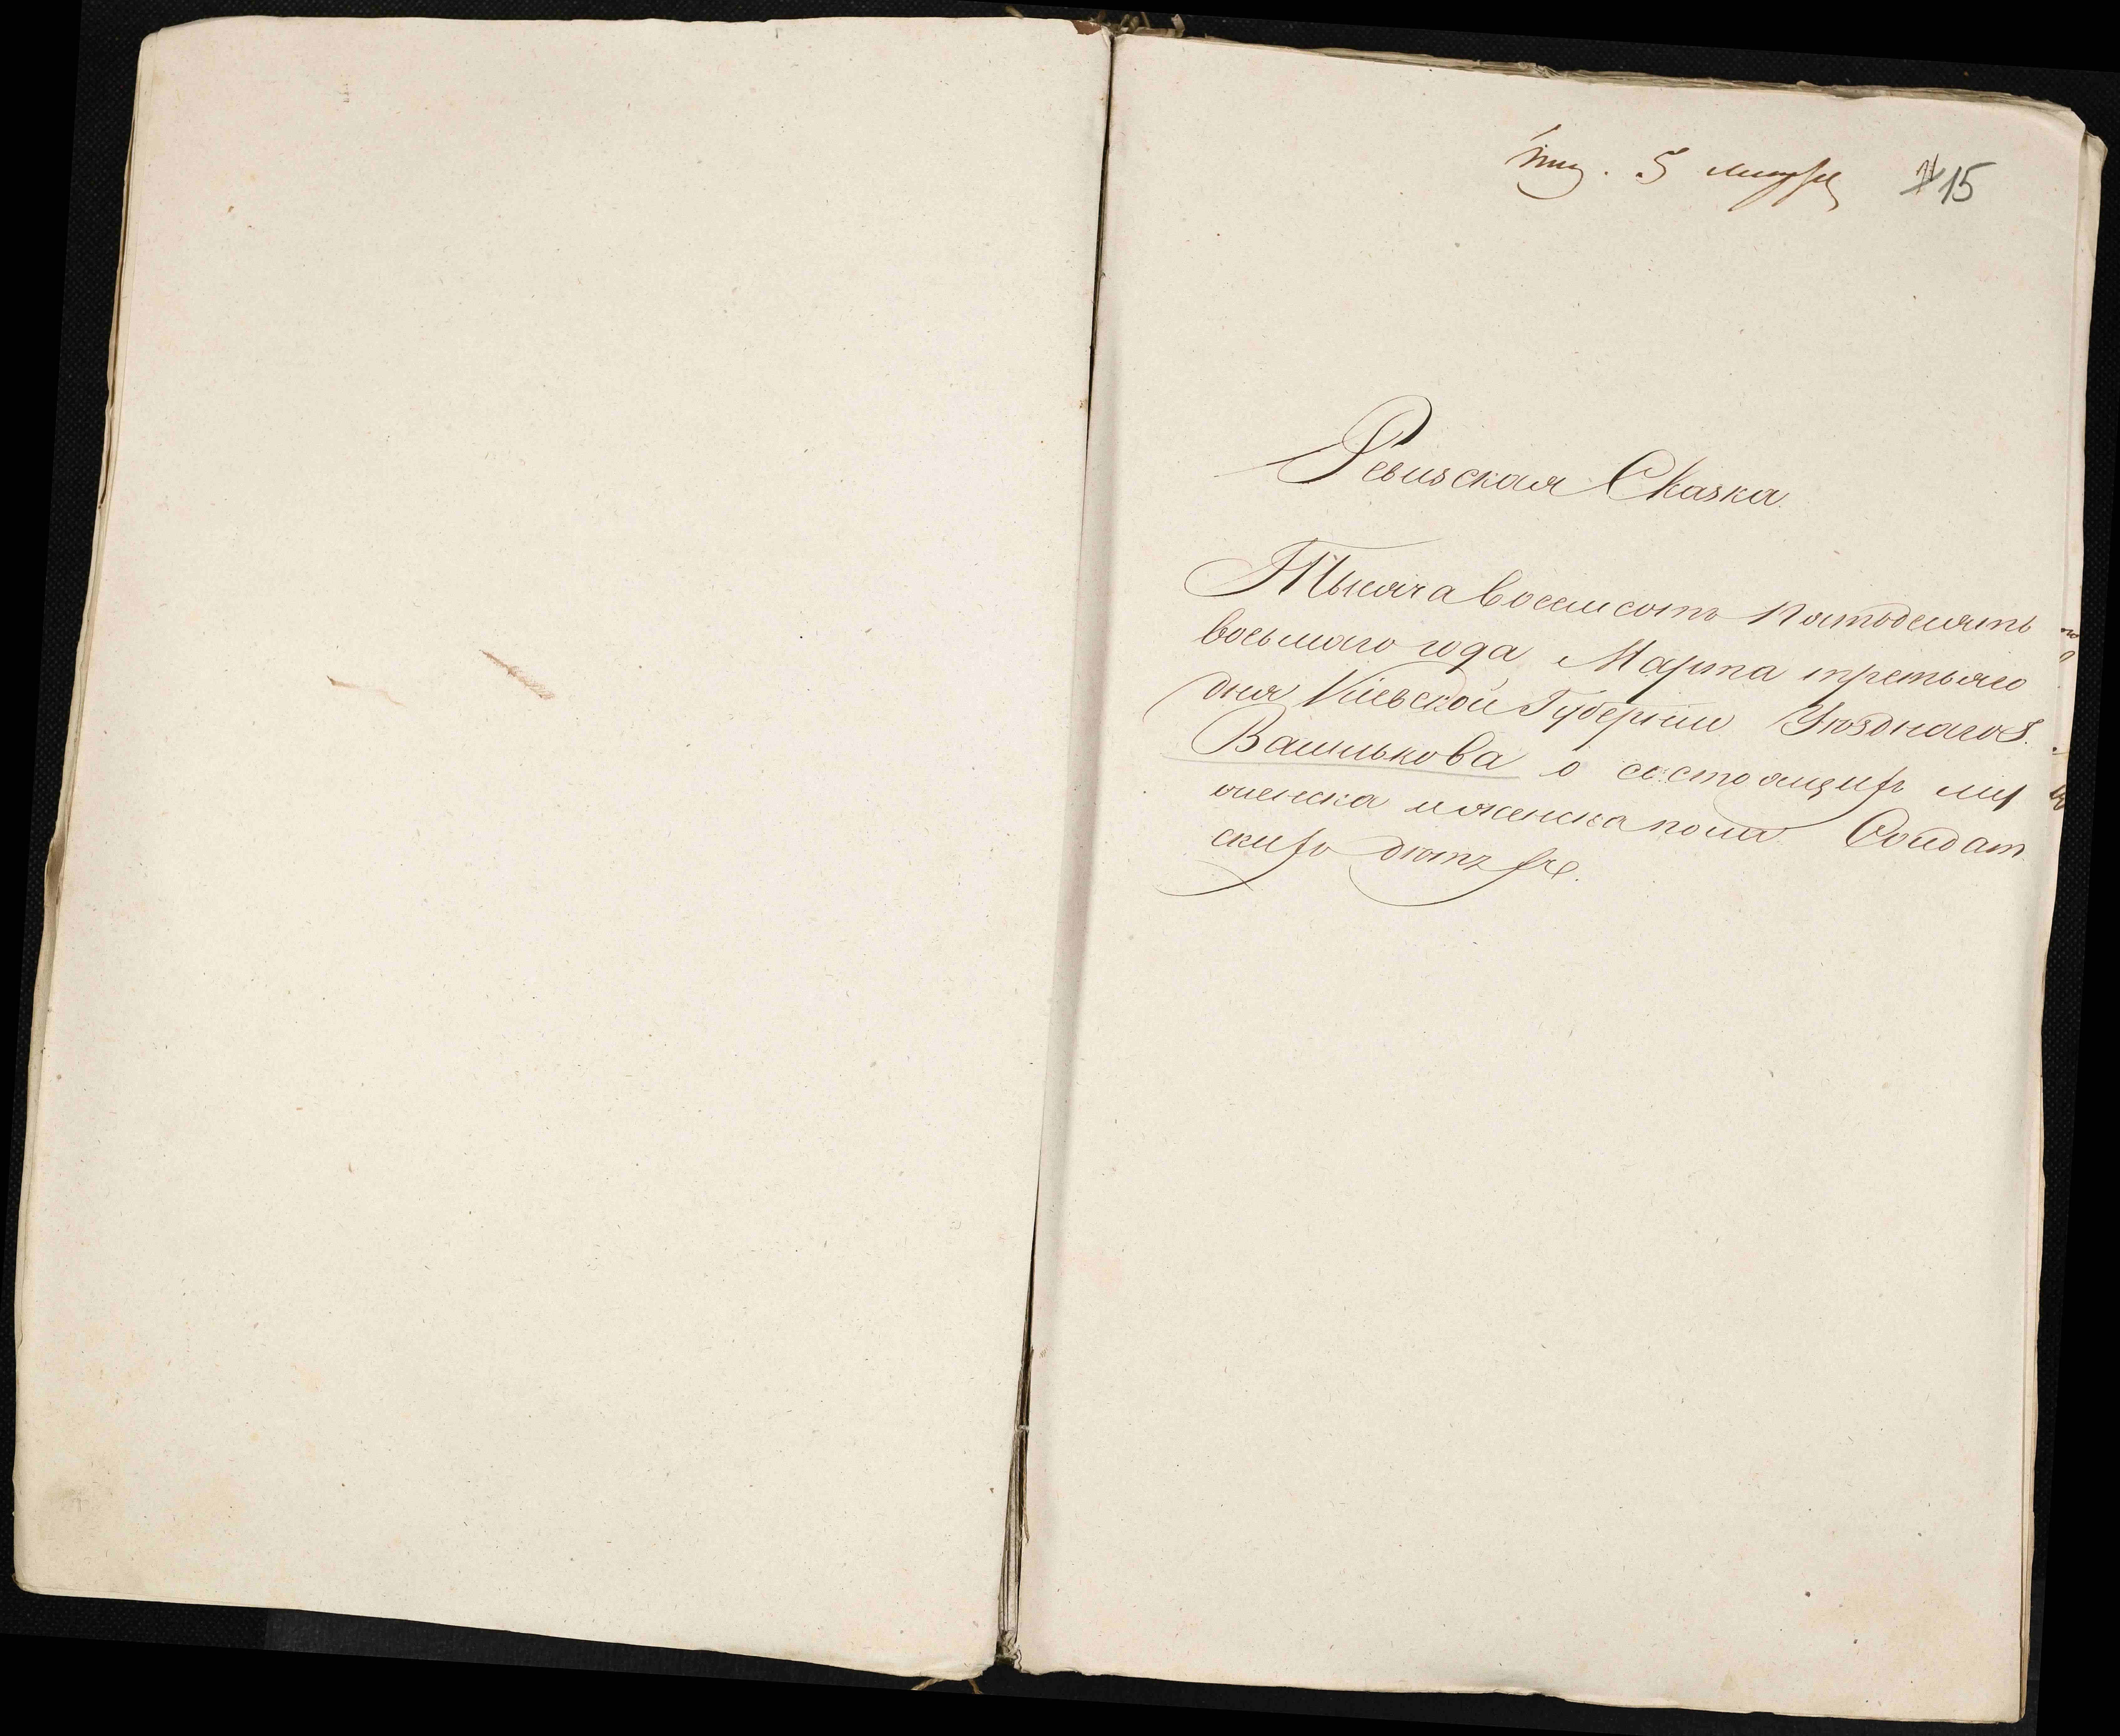 5 Марта 15
Ревизская Сказка
Тысяча восемсотъ пятьдесятъ
восьмаго года Марта третьяго
дня Кіевской Губерніи Уѣзднаго г.
Василькова о состоящихъ муж
женска пола Солдат
скихъ дѣтяхъ.